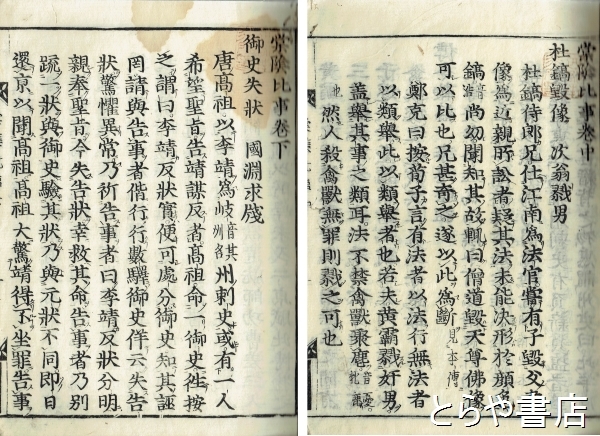 棠陰比事卷中
杜鎬毀像　次翁戮男
杜鎬侍郎兄仕江南為法官嘗有子毀父畫
像為近親所訟者疑其法未能決形於顔色
鎬音浩尚幼聞知其故輒曰僧道毀天尊佛像
可以比也兄甚奇之遂以此為斷見本傳
鄭克曰按荀子言有法者以法行無法者
以類舉此以類舉者也若夫黃霸戮奸男
蓋舉其事之類耳法不禁禽獸聚麀音憂牝鹿
也然人殺禽獸無罪則戮之可也
棠陰比事卷下
御史失狀　國淵求牋
唐髙祖以李靖為岐音其州名州刺史或有一人
希望聖旨告靖謀反者髙祖命一御史往按
之謂曰李靖反狀實便可處分御史知其誣
罔請與告事者偕行行數驛御史佯云失告
狀驚懼異常乃祈告事者曰李靖反狀分明
親奉聖旨今失告狀幸救其命告事者乃別
疏一狀與御史驗其狀乃與元狀不同即日
還京以聞髙祖髙祖大驚靖得不坐罪告事
とらや書店